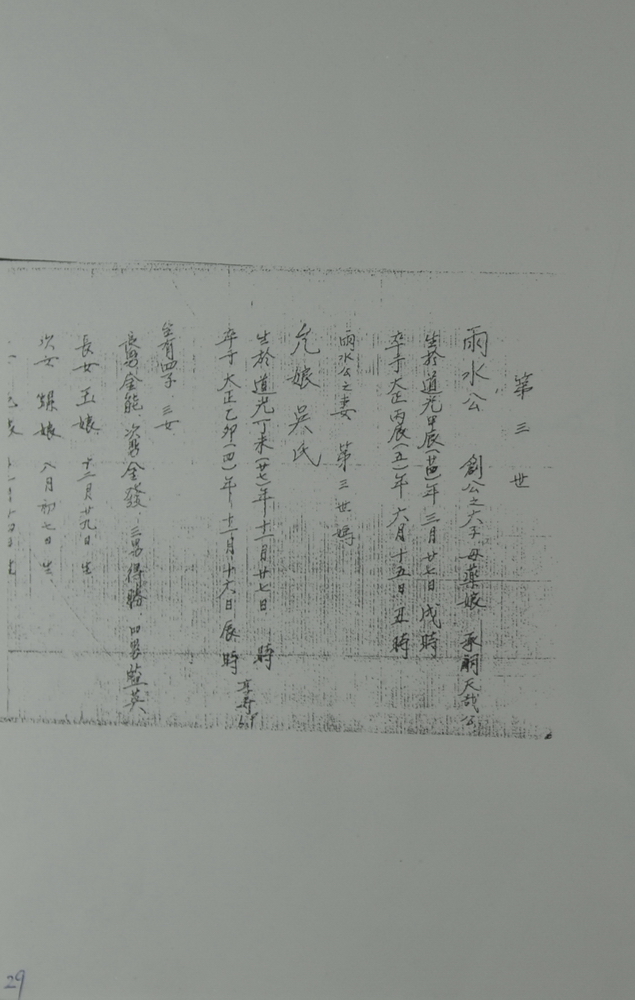 第三世
雨水公 創公之六子 母藥娘 承嗣天哉公
生於道光甲辰(廿四)年三月廿七日戌時
卒于大正丙辰(五)年六月十五日丑時
雨水公之妻 第三世媽
允娘吳氏
生於道光丁未(廿七)年十一月廿七日 時
卒于大正乙卯(四)年十二月十六日辰時 享壽
生有四子 三女
長男金能 次男金發 三男得勝 四男藍英
長女玉娘 十二月廿九日生
次女 娘 八月初七日生
29